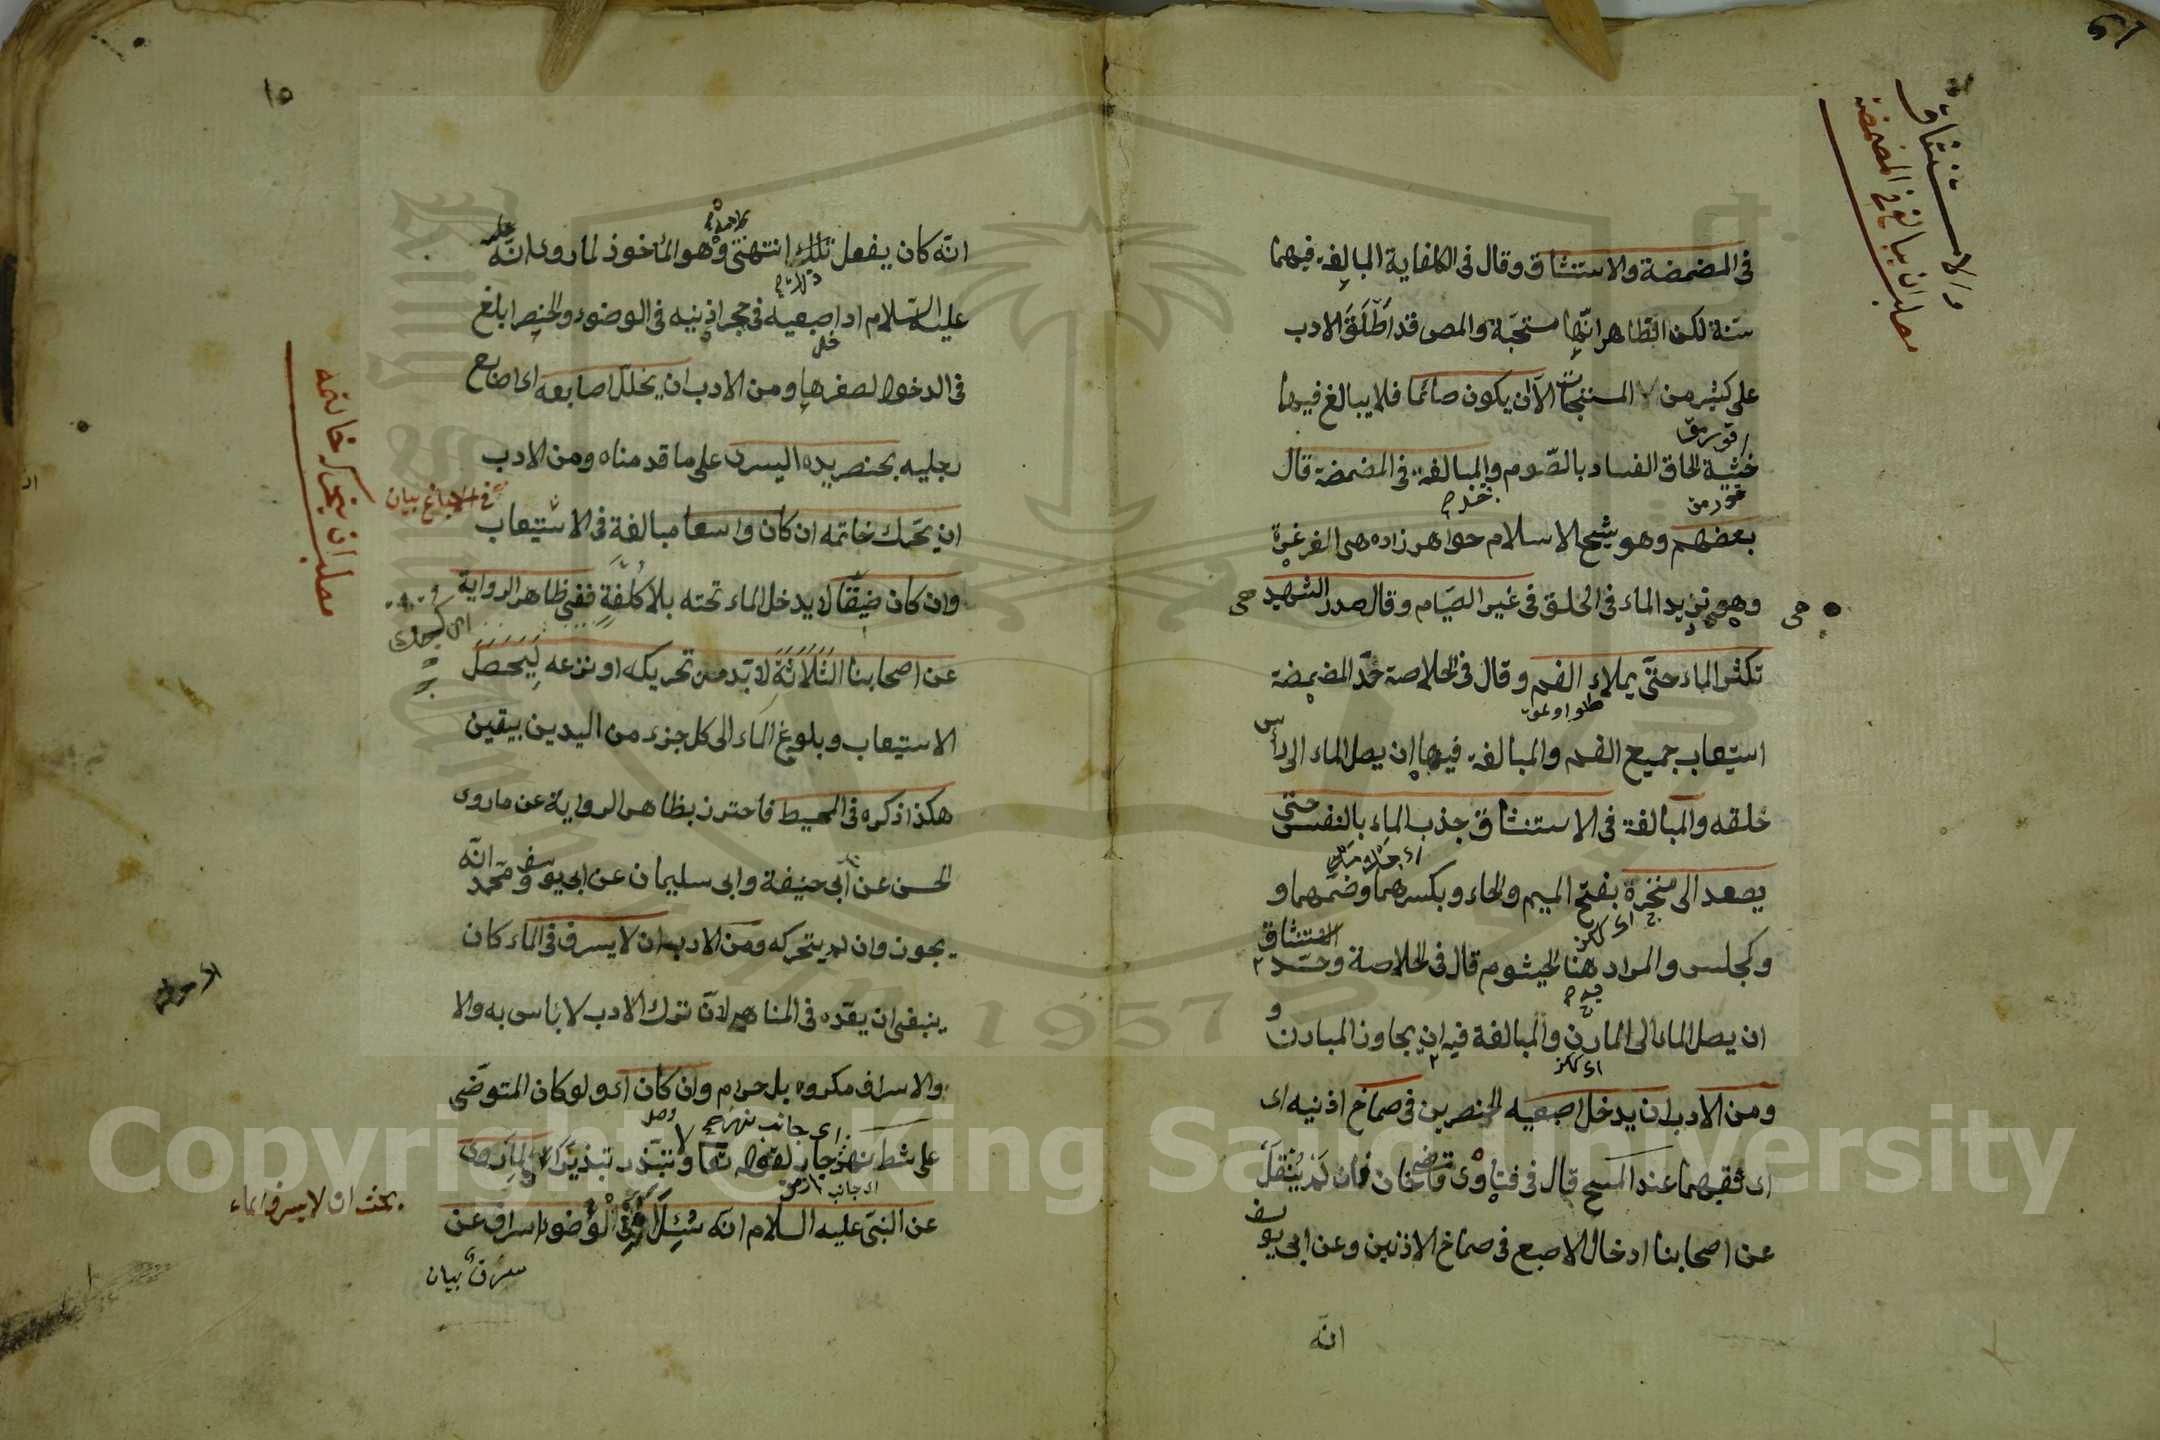 في المضمضة والاستنشاق وقال في الكفاية المبالغة فيهما
سنة لكن الظاهر انها مستحبة والمص قد اطلق الادب
على كثير من المستحبات الا ان يكون صائما فلا يبالغ فيهما
خشية لحاق الفساد بالصوم والمبالغة في المضمضة قال
بعضهم وهو شيخ الاسلام خواهر زاده هى الغرغرة
وهى تزيد الماء في الحلق في غير الصيام وقال صدر الشهيد
تكثر الماء حتى يملاء الفم وقال في الخلاصة حد المضمضة
استيعاب جميع الفم والمبالغة فيها ان يصل الماء الى رأس
حلقه والمبالغة في الاستنشاق جذب الماء بالنفس حتى
يصعد الى منخره بفتح الميم والخاء وبكسرهما وضمهما و
وكمجلس والمراد هنا الخيشوم قال في الخلاصة وحد الاستنشاق
ان يصل الماء الى المارن والمبالغة فيه ان يجاوز المارن و
ومن الادب ان يدخل اصبعيه الخنصرين في صماخ اذنيه اى
اى ثقبهما عند المسح قال في فتاوى قاضيخان فان لم ينقل
عن اصحابنا ادخال الاصبع في صماخ الاذنين وعن ابى يوسف
انه
والاستنشاق
مطلب ان يبالغ في المضمضة
١٥
انه كان يفعل تلك انتهى وهو المأخوذ لما روى انه
عليه السلام ادخل اصبعيه في حجر اذنيه في الوضوء والخنصر ابلغ
في الدخول لصغرها ومن الادب ان يخلل اصابعه اى اصابع
رجليه بخنصر يده اليسرى على ما قدمناه ومن الادب
ان يحرك خاتمه ان كان واسعا مبالغة في الاستيعاب
وان كان ضيقا لا يدخل الماء تحته بلا كلفة ففى ظاهر الرواية
عن اصحابنا الثلاثة لا بد من تحريكه او نزعه ليحصل
الاستيعاب وبلوغ الماء الى كل جزء من اليدين بيقين
هكذا ذكره في المحيط فاحترز بظاهر الرواية عن ما روى
الحسن عن ابى حنيفة وابى سليمان عن ابى يوسف ومحمد انه
يجوز وان لم يتحركه ومن الادب ان لا يسرف في الماء كان
ينبغى ان يعده في المناهى لان ترك الادب لا باس به ولا
والاسراف مكروه بل حرام وان كان اى ولو كان المتوضى
على شط نهر جار لقوله تعا ولا تبذر تبذيرا ولما روى
عن النبى عليه السلام انه سئل أفى الوضوء اسراف عن
مطلب ان يحرك خاتمه
بحث ان لا يسرف الماء